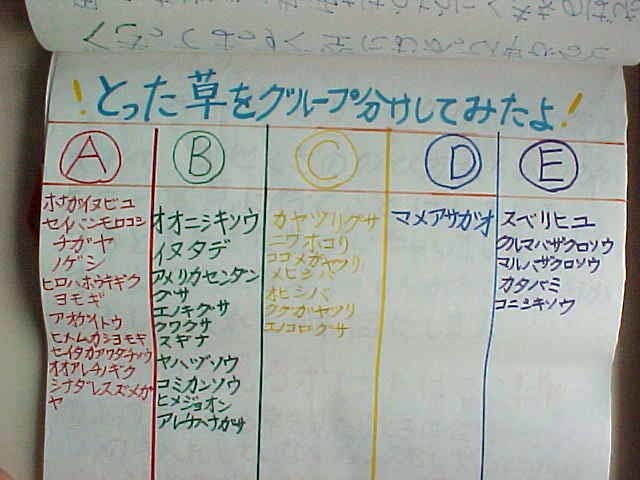 ！とった草をグループ分けしてみたよ！
A
ホナガイヌビユ
セイバンモロコシ
チガヤ
ノゲシ
ヒロハホウキギク
ヨモギ
アオゲイトウ
ヒメムカシヨモギ
セイタカアワダチソウ
オオアレチノギク
シナダレスズメガ
ヤ
B
オオニシキソウ
イヌタデ
アメリカセンダン
グサ
エノキグサ
クワクサ
スギナ
ヤハズソウ
コミカンソウ
ヒメジョオン
アレチハナガサ
C
カヤツリグサ
ニワホコリ
ココメガヤツリ
メヒシバ
オヒシバ
クグガヤツリ
エノコログサ
D
マメアサガオ
E
スベリヒユ
クルマバザクロソウ
マルバザクロソウ
カタバミ
コニシキソウ